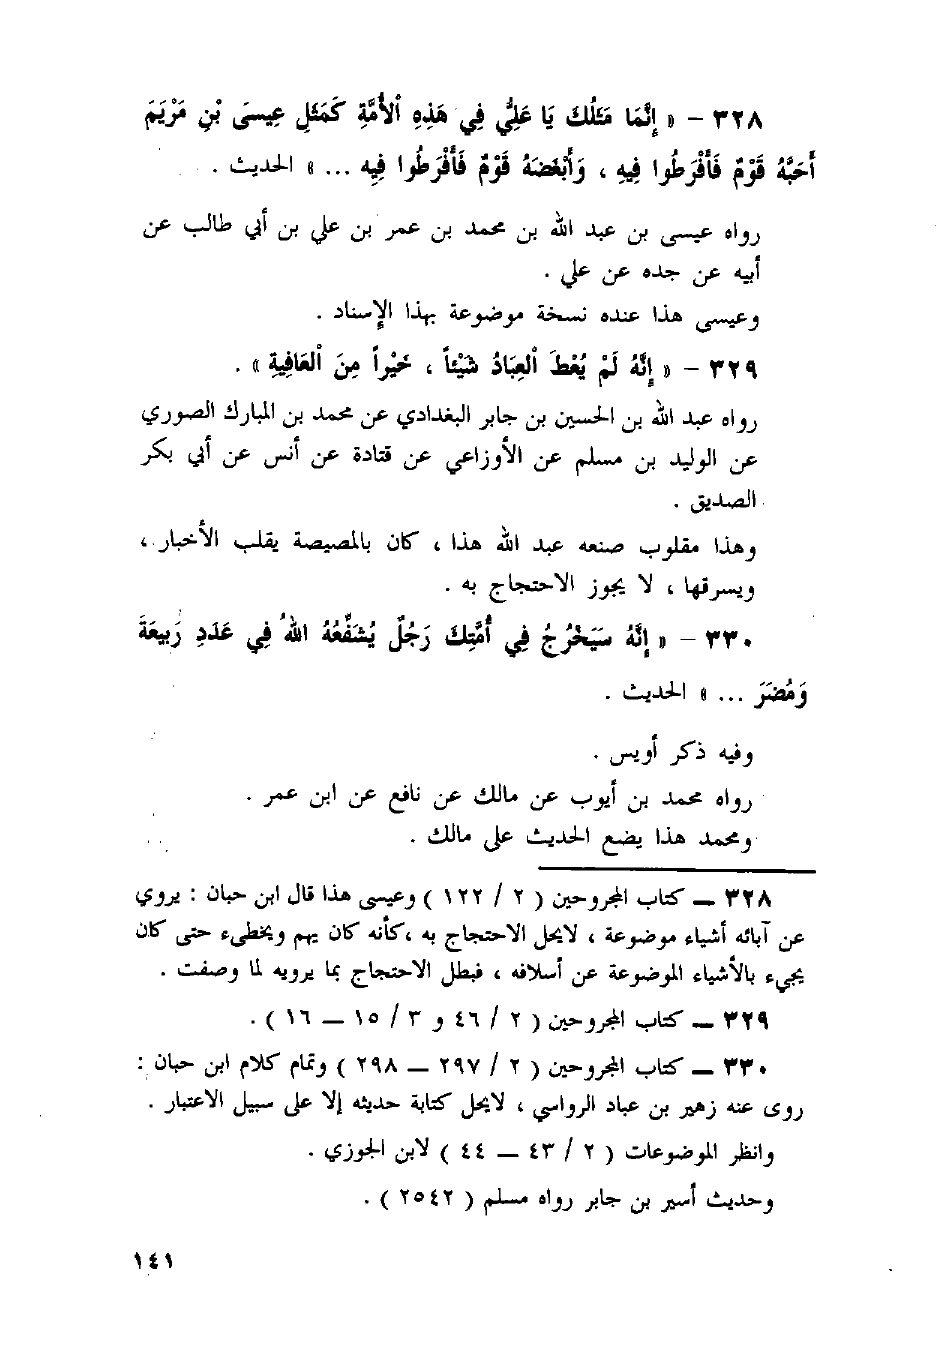 ٣٢٨ - « إِنَّمَا مَثَلُكَ يَا عَلِيُّ فِي هَذِهِ الْأُمَّةِ كَمَثَلِ عِيسَى بْنِ مَرْيَمَ
أَحَبَّهُ قَوْمٌ فَأَفْرَطُوا فِيهِ ، وَأَبْغَضَهُ قَوْمٌ فَأَفْرَطُوا فِيهِ ... » الحديث .
رواه عيسى بن عبد الله بن محمد بن عمر بن علي بن أبي طالب عن
أبيه عن جده عن علي .
وعيسى هذا عنده نسخة موضوعة بهذا الإسناد .
٣٢٩ - « إِنَّهُ لَمْ يُعْطَ الْعِبَادُ شَيْئاً ، خَيْراً مِنَ الْعَافِيةِ » .
رواه عبد الله بن الحسين بن جابر البغدادي عن محمد بن المبارك الصوري
عن الوليد بن مسلم عن الأوزاعي عن قتادة عن أنس عن أبي بكر
الصديق .
وهذا مقلوب صنعه عبد الله هذا ، كان بالمصيصة يقلب الأخبار ،
ويسرقها ، لا يجوز الاحتجاج به .
٣٣٠ - « إِنَّهُ سَيَخْرُجُ فِي أُمَّتِكَ رَجُلٌ يُشَفِّعُهُ اللهُ فِي عَدَدِ رَبِيعَةَ
وَمُضَرَ ... » الحديث .
وفيه ذكر أويس .
رواه محمد بن أيوب عن مالك عن نافع عن ابن عمر .
ومحمد هذا يضع الحديث على مالك .
٣٢٨ — كتاب المجروحين ( ٢ / ١٢٢ ) وعيسى هذا قال ابن حبان : يروي
عن آبائه أشياء موضوعة ، لايحل الاحتجاج به ،كأنه كان يهم ويخطىء حتى كان
يجيء بالأشياء الموضوعة عن أسلافه ، فبطل الاحتجاج بما يرويه لما وصفت .
٣٢٩ — كتاب المجروحين ( ٢ / ٤٦ و ٣ / ١٥ — ١٦ ) .
٣٣٠ — كتاب المجروحين ( ٢ / ٢٩٧ — ٢٩٨ ) وتمام كلام ابن حبان :
روى عنه زهير بن عباد الرواسي ، لايحل كتابة حديثه إلا على سبيل الاعتبار .
وانظر الموضوعات ( ٢ / ٤٣ — ٤٤ ) لابن الجوزي .
وحديث أسير بن جابر رواه مسلم ( ٢٥٤٢ ) .
١٤١